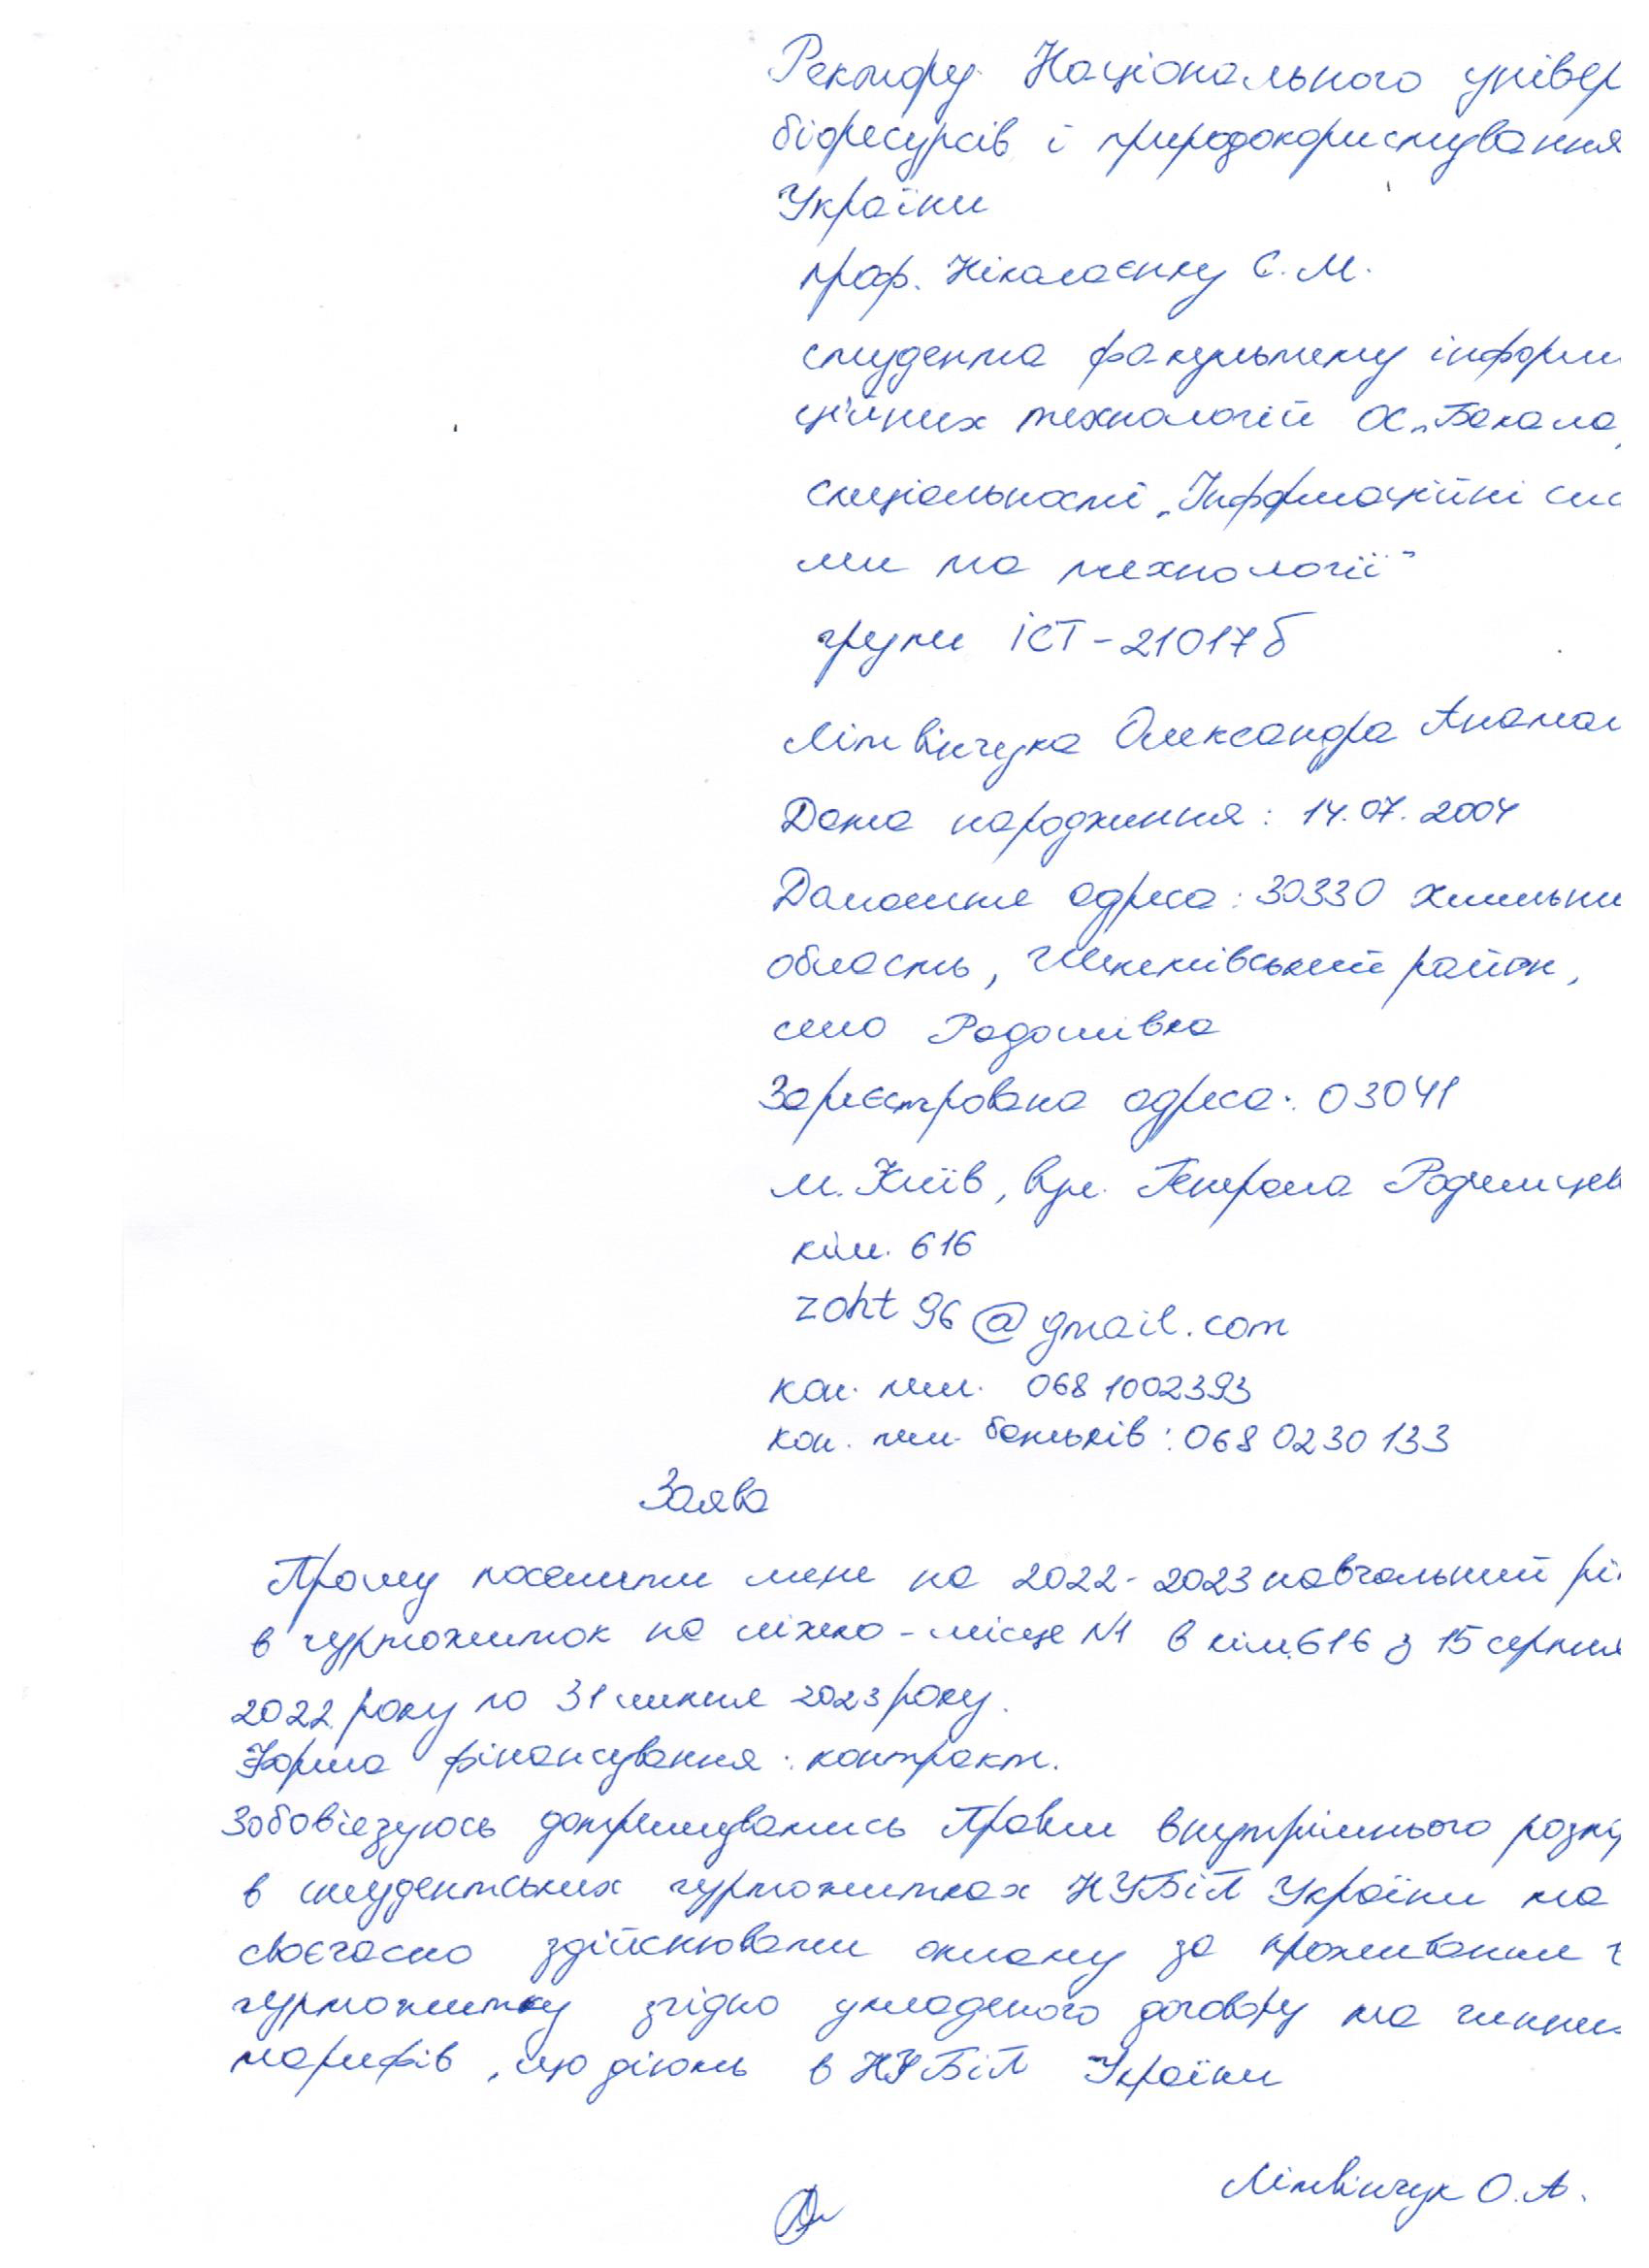 Ректору Національного універ
біоресурсів і природокористування
України
проф. Ніколаєнку С. М.
студента факультету інформ
ційних технологій ОС „Бакала
спеціальності „Інформаційні сис
ми та технології"
групи ІСТ-21017б
Літвінчука Олександра Анатол
Дата народження: 14.07.2004
Домашня адреса: 30330 Хмельни
область, район,
село Радошівка
Зареєстрована адреса: 03041
м. Київ, вул. Генерала Родимцев
кім. 616
zoht96@gmail.com
кон. тел. 068 1002393
кон. тел. батьків: 068 0230 133
Заява
Прошу поселити мене на 2022-2023 навчальний рі
в гуртожиток на ліжко-місце №1 в кім.616 з 15 серпня
2022 року по 31 липня 2023 року.
Форма фінансування: контракт.
Зобов'язуюсь дотримуватись Правил внутрішнього розп
в студентських гуртожитках НУБіП України та
своєчасно здійснювати оплату за проживання
гуртожитку згідно укладеного договору та чинни
тарифів, що діють в НУБіП України
Літвінчук О. А.